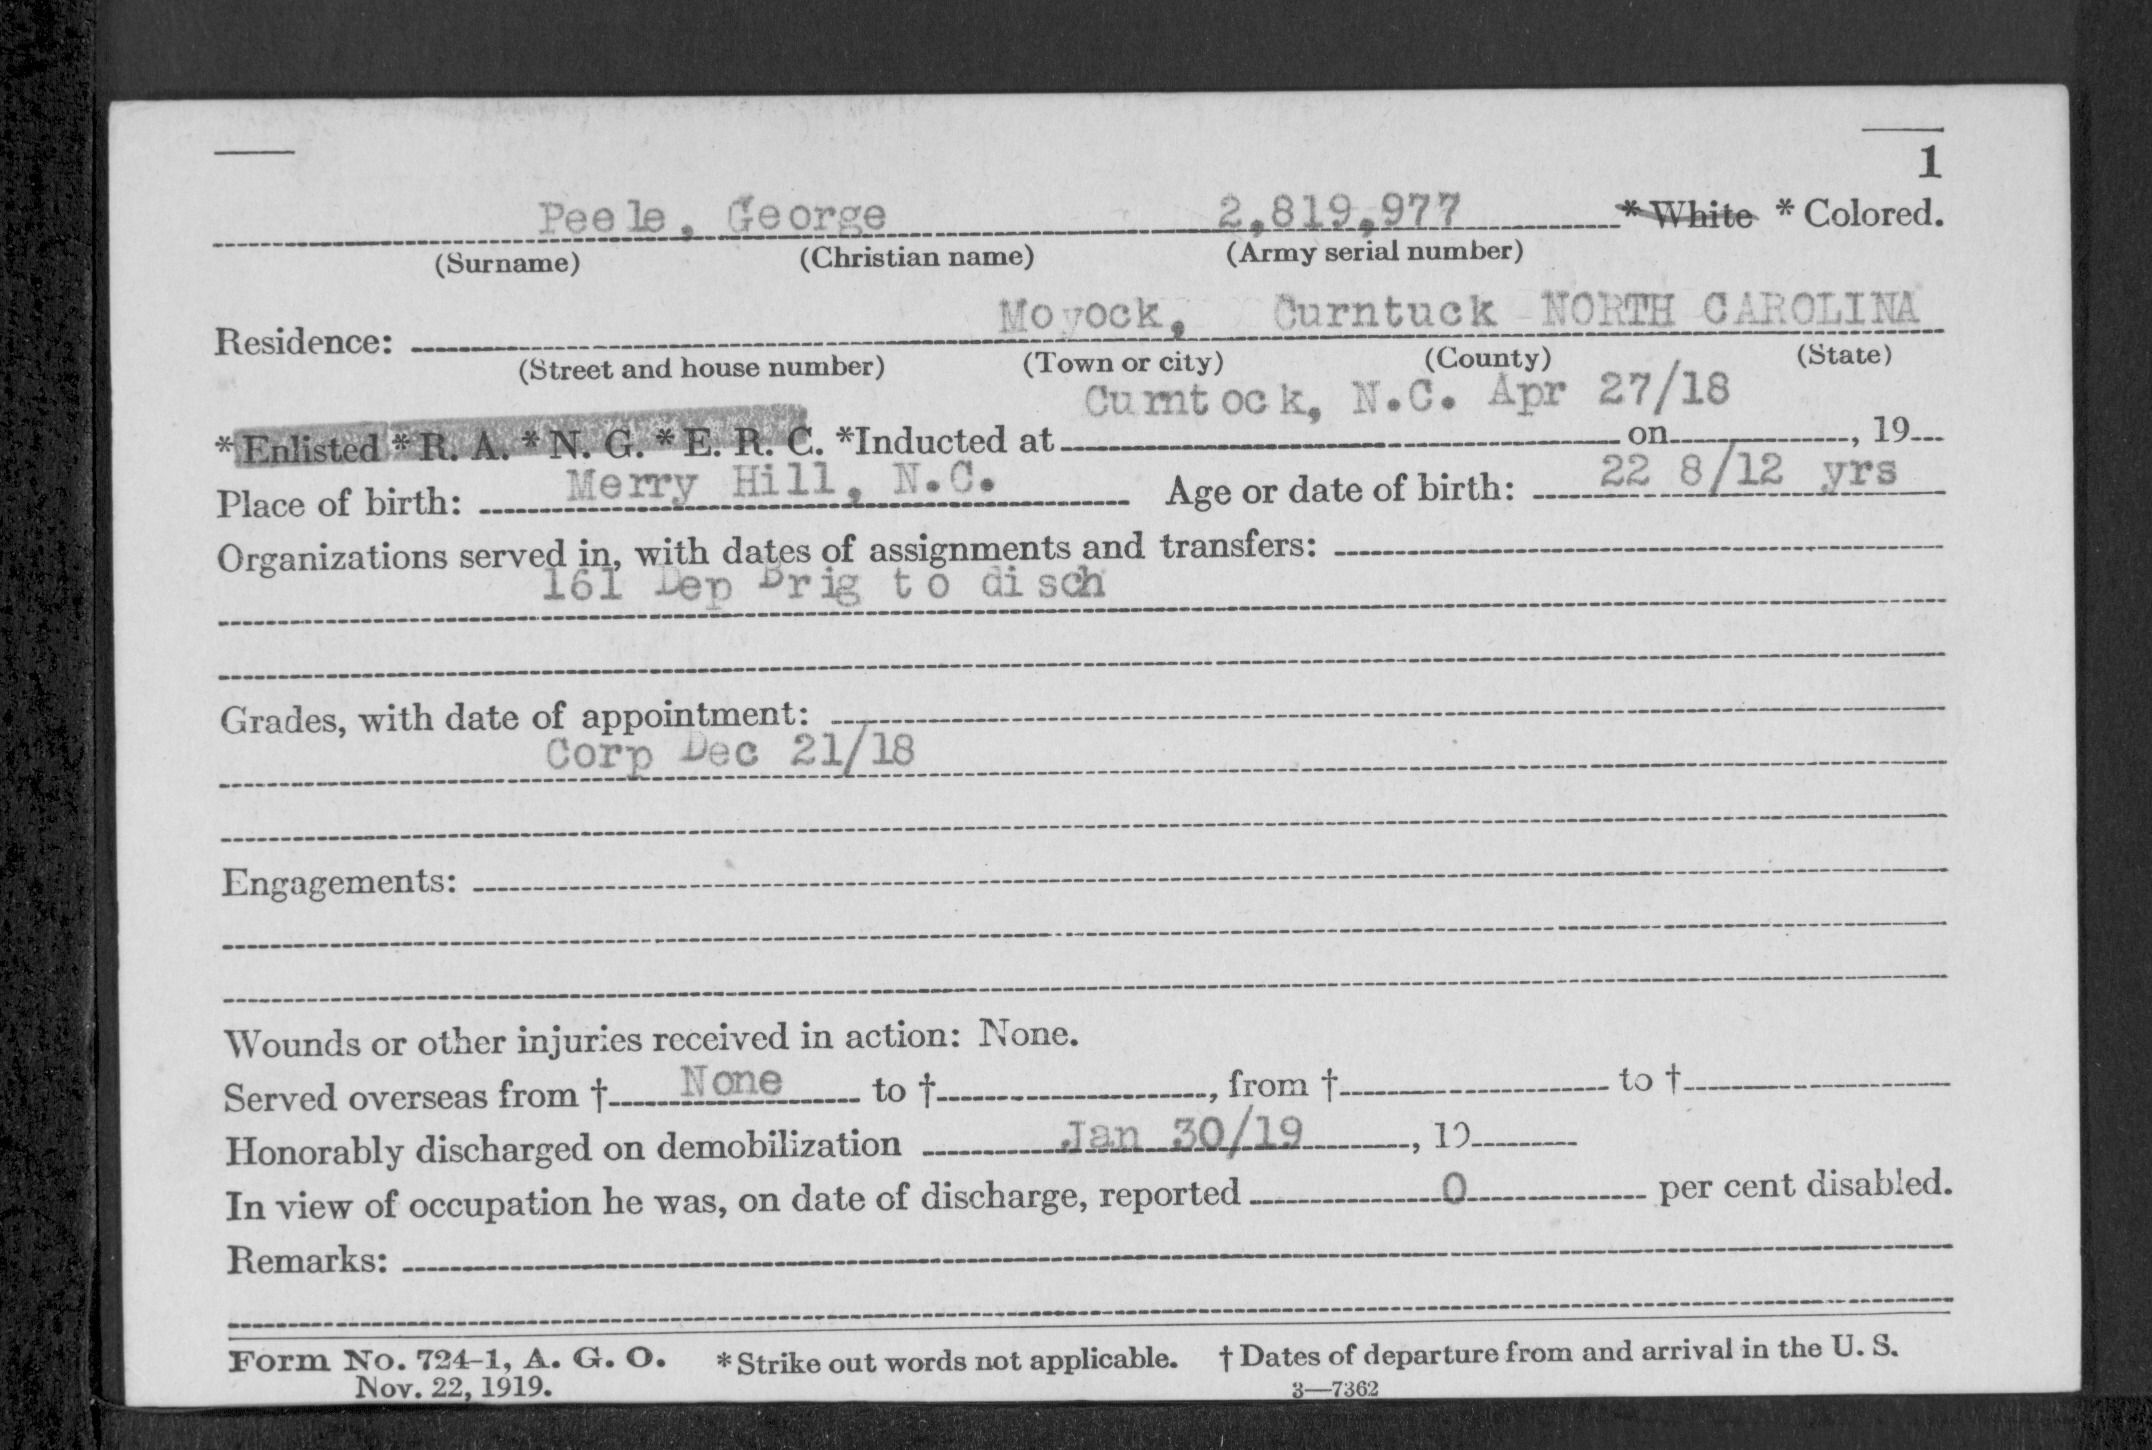 1
Peele, George 2,819,977 *White *Colored.
(Surname) (Christian name) (Army serial number)
Residence: Moyock, Curntuck NORTH CAROLINA
(Street and house number) (Town or city) (County) (State)
Curntock, N.C. Apr 27/18
*Enlisted *R. A. *N. G. *E. R. C. *Inducted at on , 19
Place of birth: Merry Hill, N.C. Age or date of birth: 22 8/12 yrs
Organizations served in, with dates of assignments and transfers:
161 Dep Brig to disch
Grades, with date of appointment:
Corp Dec 21/18
Engagements:
Wounds or other injuries received in action: None.
Served overseas from † None to † , from † to †
Honorably discharged on demobilization Jan 30/19 , 19
In view of occupation he was, on date of discharge, reported 0 per cent disabled.
Remarks:
Form No. 724-1, A. G. O. *Strike out words not applicable. † Dates of departure from and arrival in the U. S.
Nov. 22, 1919. 3—7362